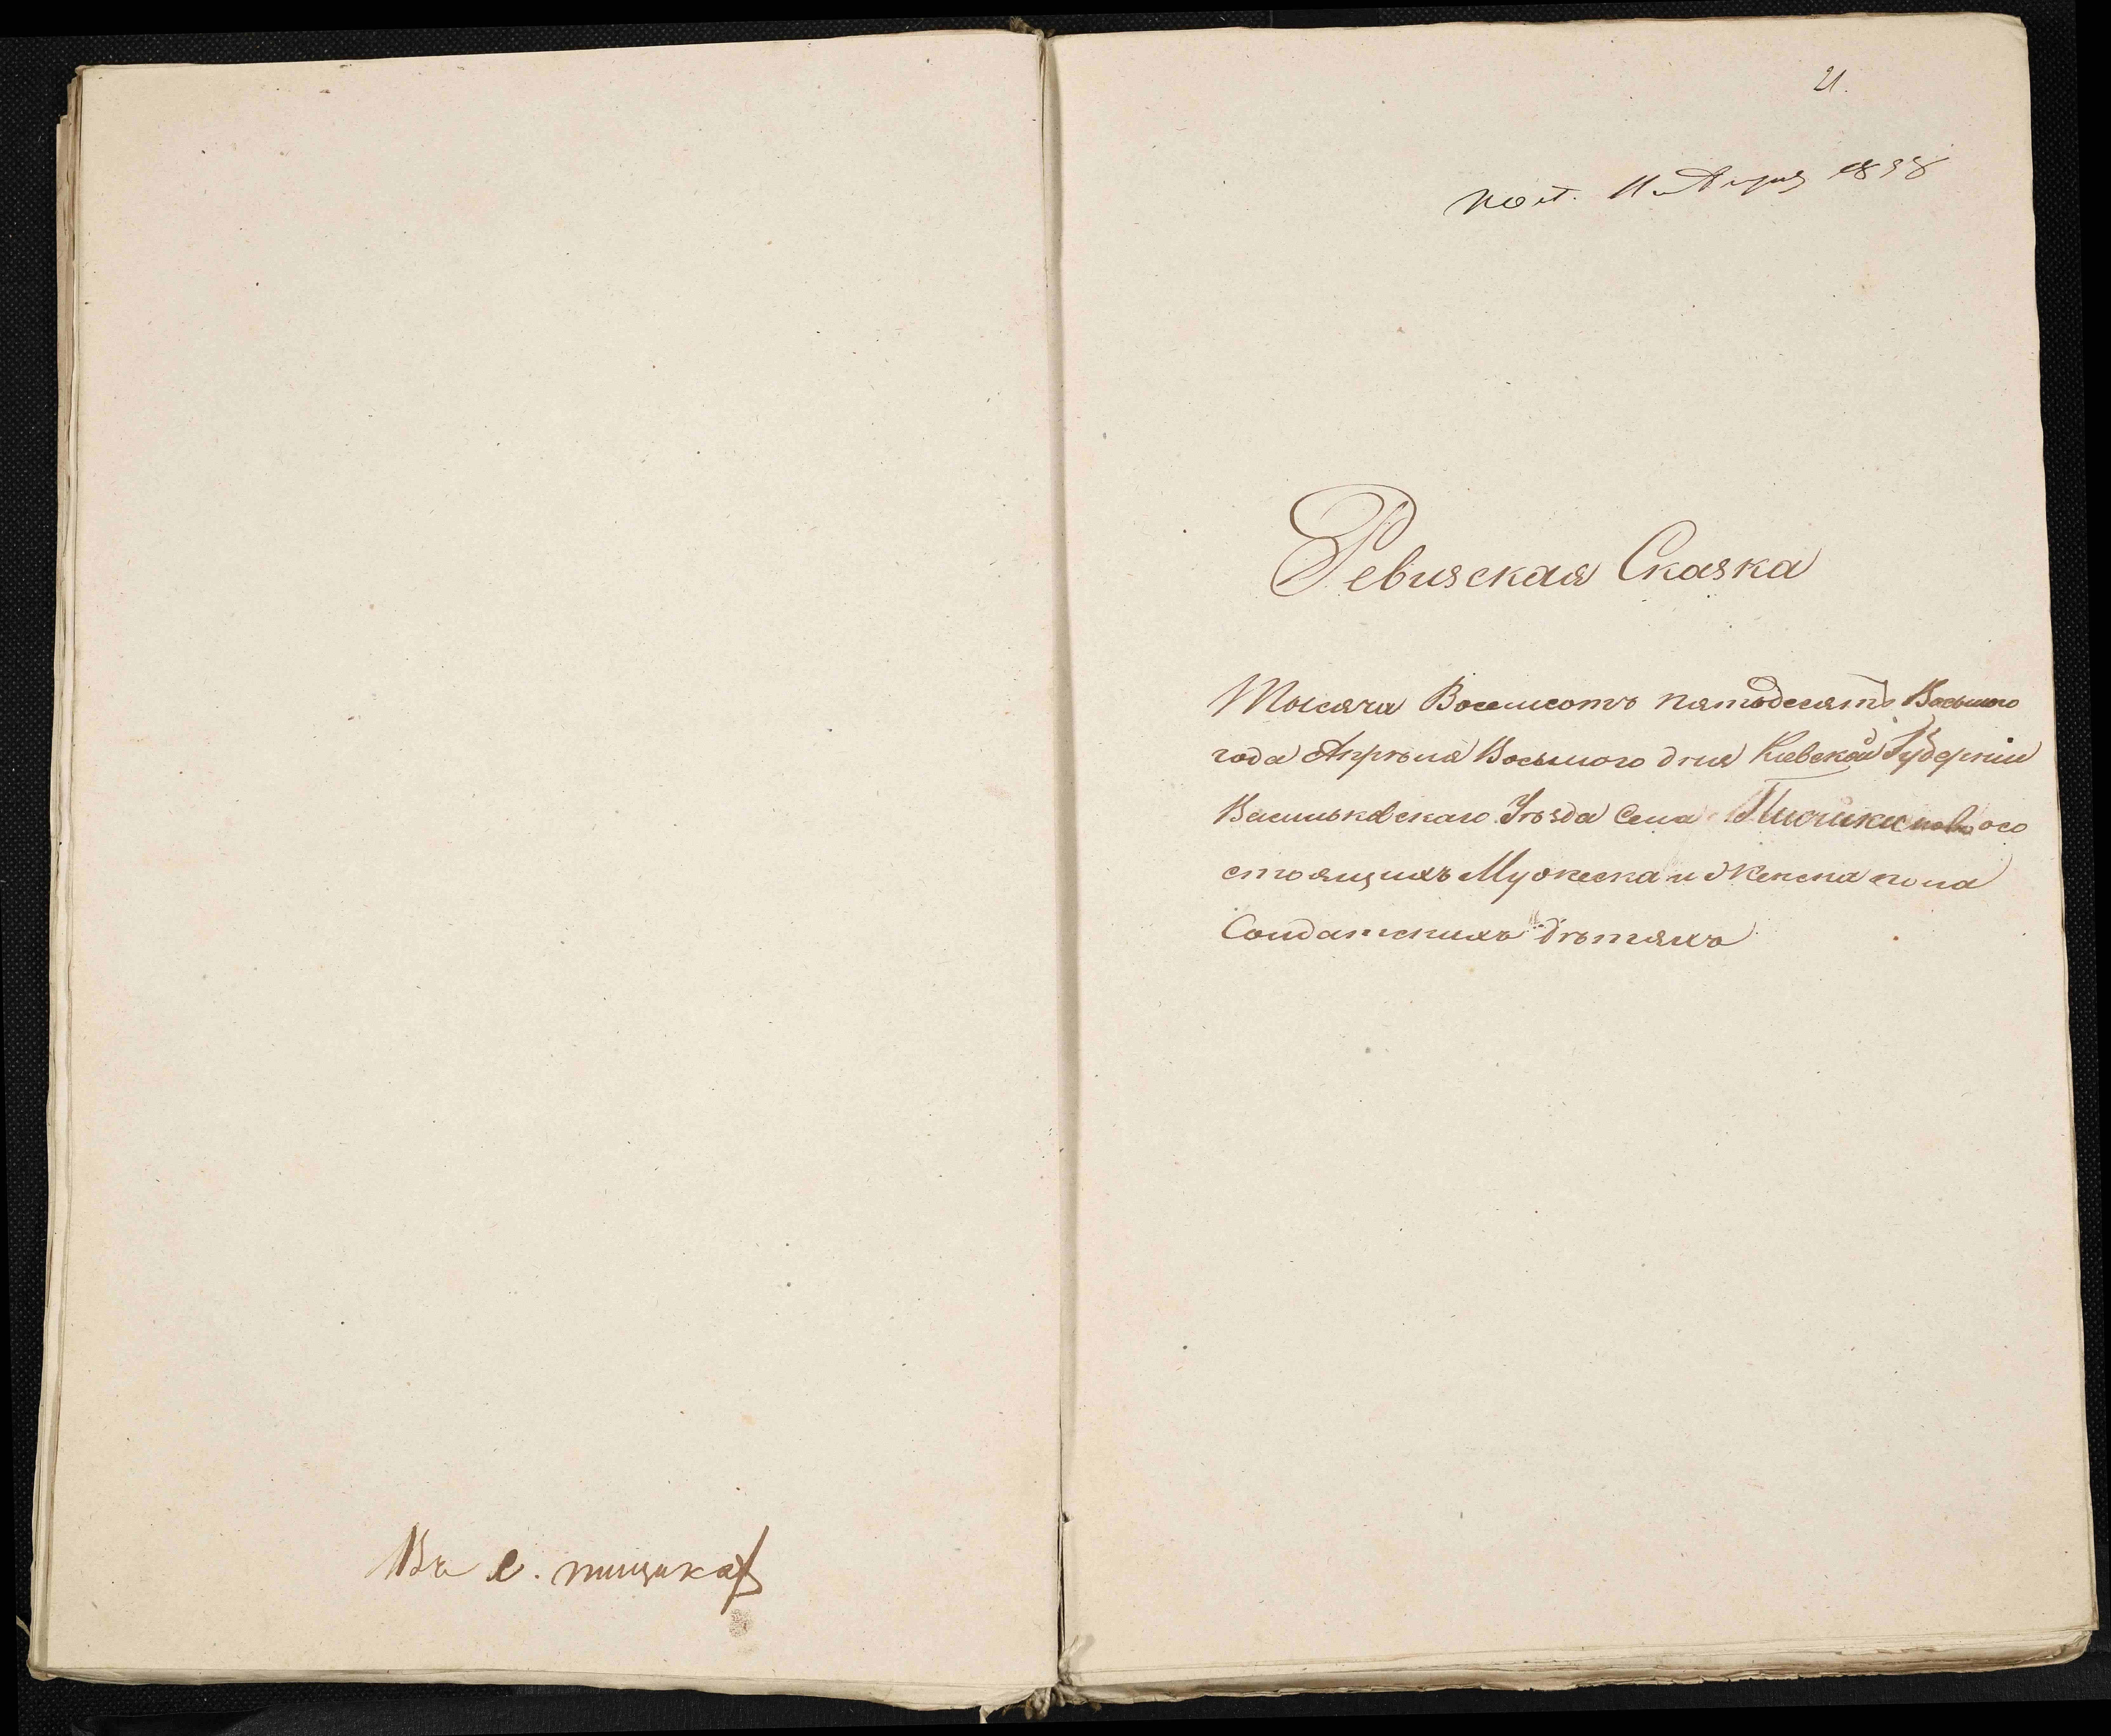 Въ с. пищика
21.
пол. 11 Апреля 1858
Ревизская Сказка
Тысяча Восемсотъ пятьдесятъ Восьмого
года Апрѣля Восьмого дня Кіевской Губерніи
Васильковскаго Уѣзда Села осо
стоящихъ Мужеска и Женска пола
Солдатскихъ дѣтяхъ